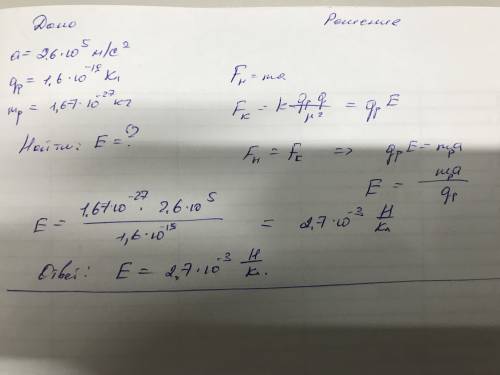 Дано
Решение
a = 2,6·10⁵ м/с²
qₚ = 1,6·10⁻¹⁹ Кл
mₚ = 1,67·10⁻²⁷ кг
Найти: E = ?
Fₙ = ma
Fₖ = k qₚ q / r² = qₚ E
Fₙ = Fₖ => qₚ E = mₚ a
E = mₚa / qₚ
E = 1,67·10⁻²⁷ · 2,6·10⁵ / 1,6·10⁻¹⁹ = 2,7·10⁻³ Н/Кл
Ответ: E = 2,7·10⁻³ Н/Кл.